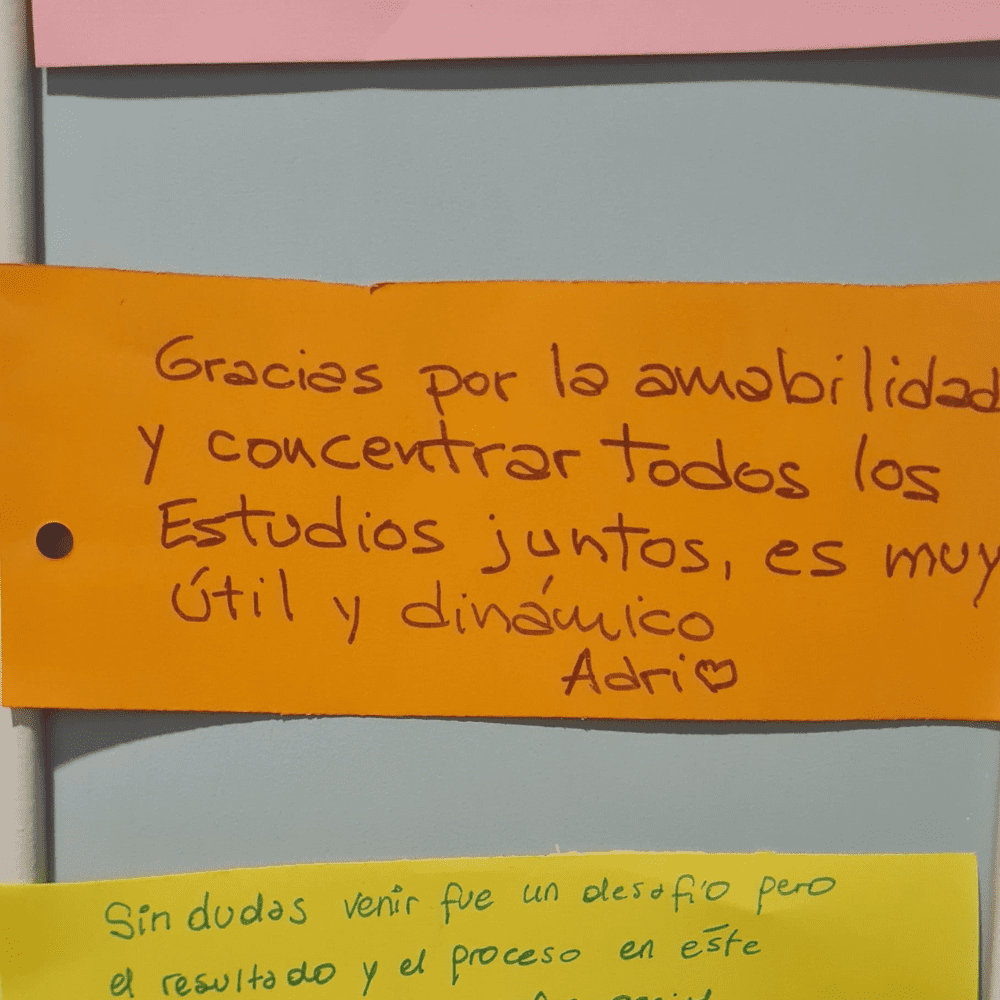 Gracias por la amabilidad
y concentrar todos los
Estudios juntos, es muy
útil y dinámico
Adri♡
Sin dudas venir fue un desafío pero
el resultado y el proceso en este